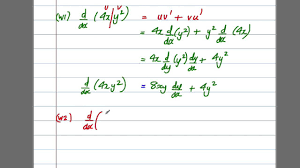 u v
(W1) d/dx (4x|y²) = uv' + vu'
= 4x d/dx (y²) + y² d/dx (4x)
= 4x d/dy (y²) dy/dx + 4y²
d/dx (4xy²) = 8xy dy/dx + 4y²
(W2) d/dx (